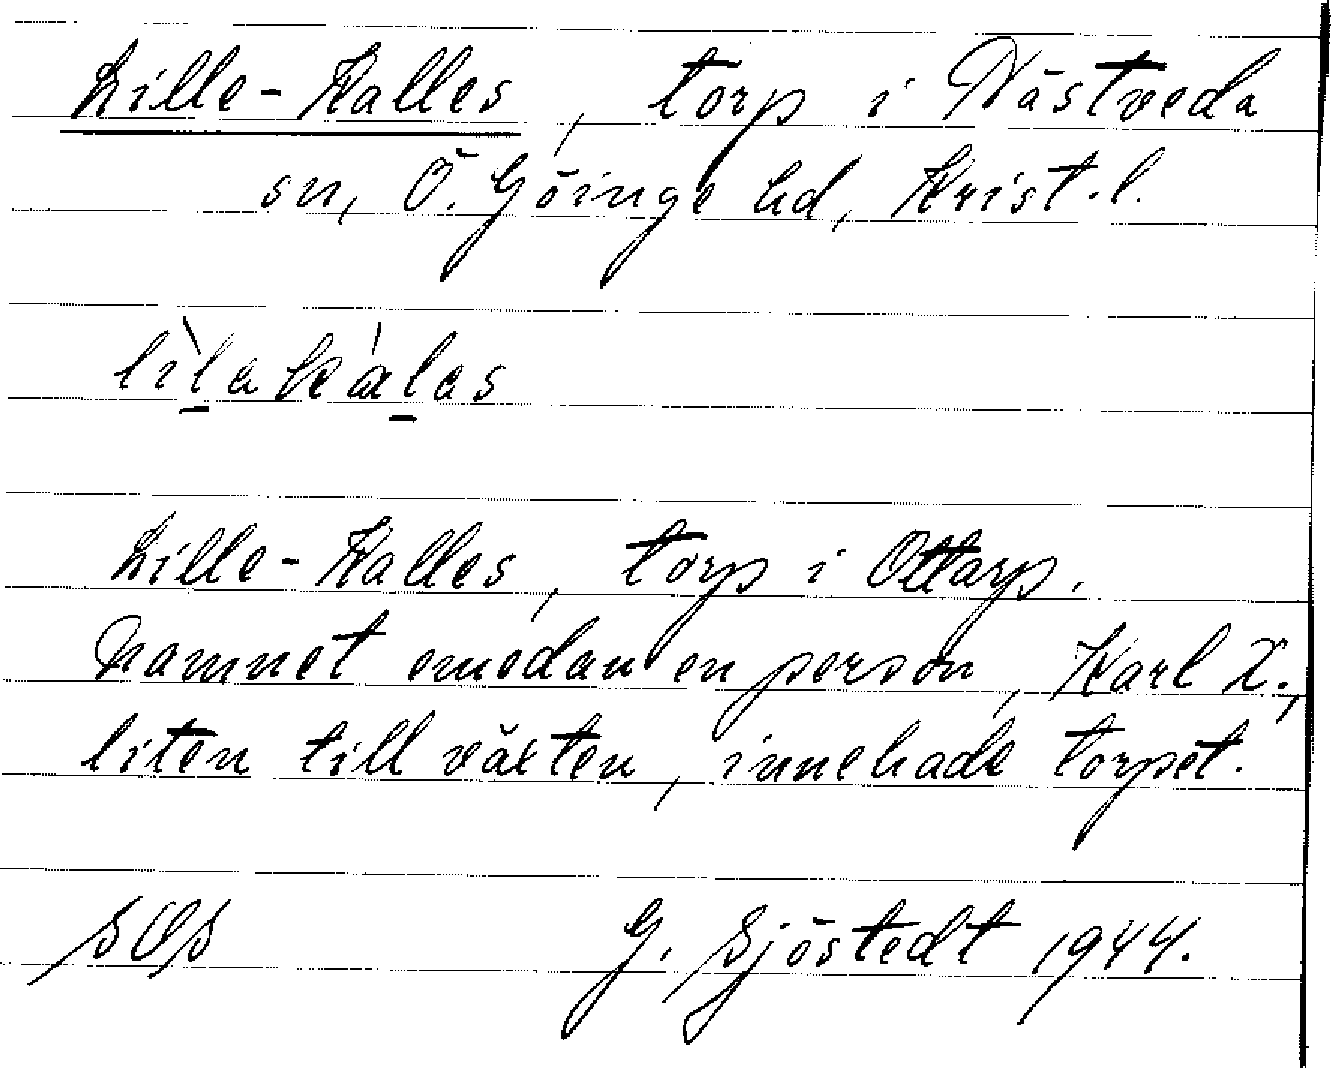 Lille-Kalles, torp i Nästveda
sn, Ö. Göinge hd, Krist. l.
lìlakàlas
Lille-Kalles, torp i Ottarp.
Namnet emedan en person, Karl X.,
liten till växten, innehade torpet.
SOS G. Sjöstedt 1944.